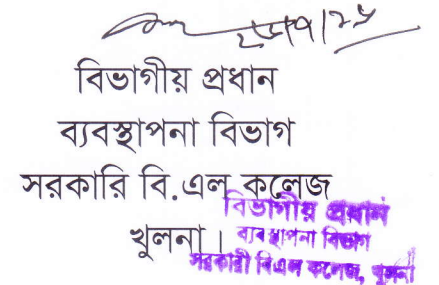 ২৮/৭/২৫
বিভাগীয় প্রধান
ব্যবস্থাপনা বিভাগ
সরকারি বি.এল কলেজ
খুলনা।
বিভাগীয় প্রধান
ব্যবস্থাপনা বিভাগ
সরকারী বিএল কলেজ, খুলনা